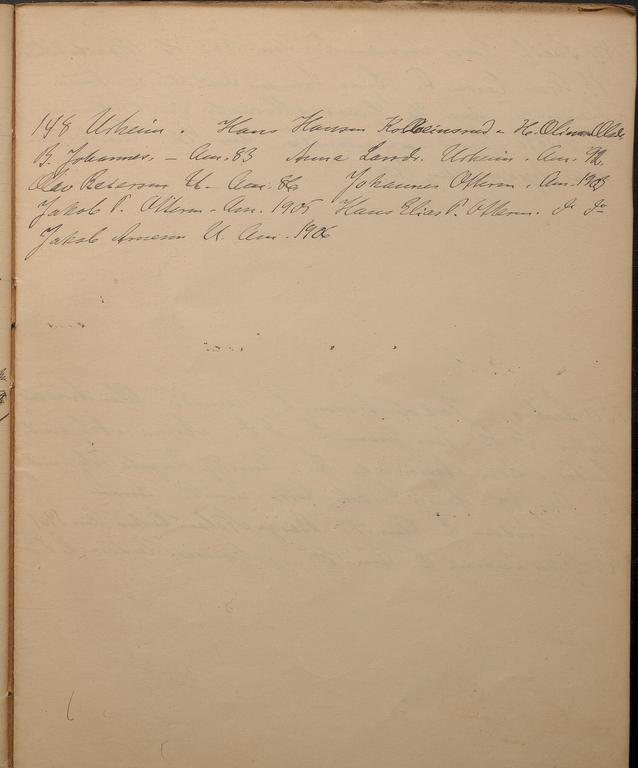 148 Urheim. Hans Hansen Kolbeinsrud - H. Oline Olsdr
B. Johannes. - Am. 83 Anna Larsdr. Urheim. Am. 92
Olav Reiersen U. - Am. 86 Johannes Ofterm. Am. 1903
Jakob P. Ofterm. Am. 1905 Hans Elias P. Ofterm. do do
Jakob Arnesen U. Am. 1906